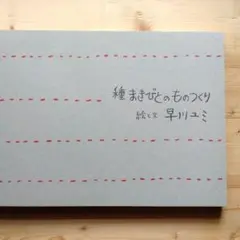 種まきびとのものつくり
絵と文 早川ユミ